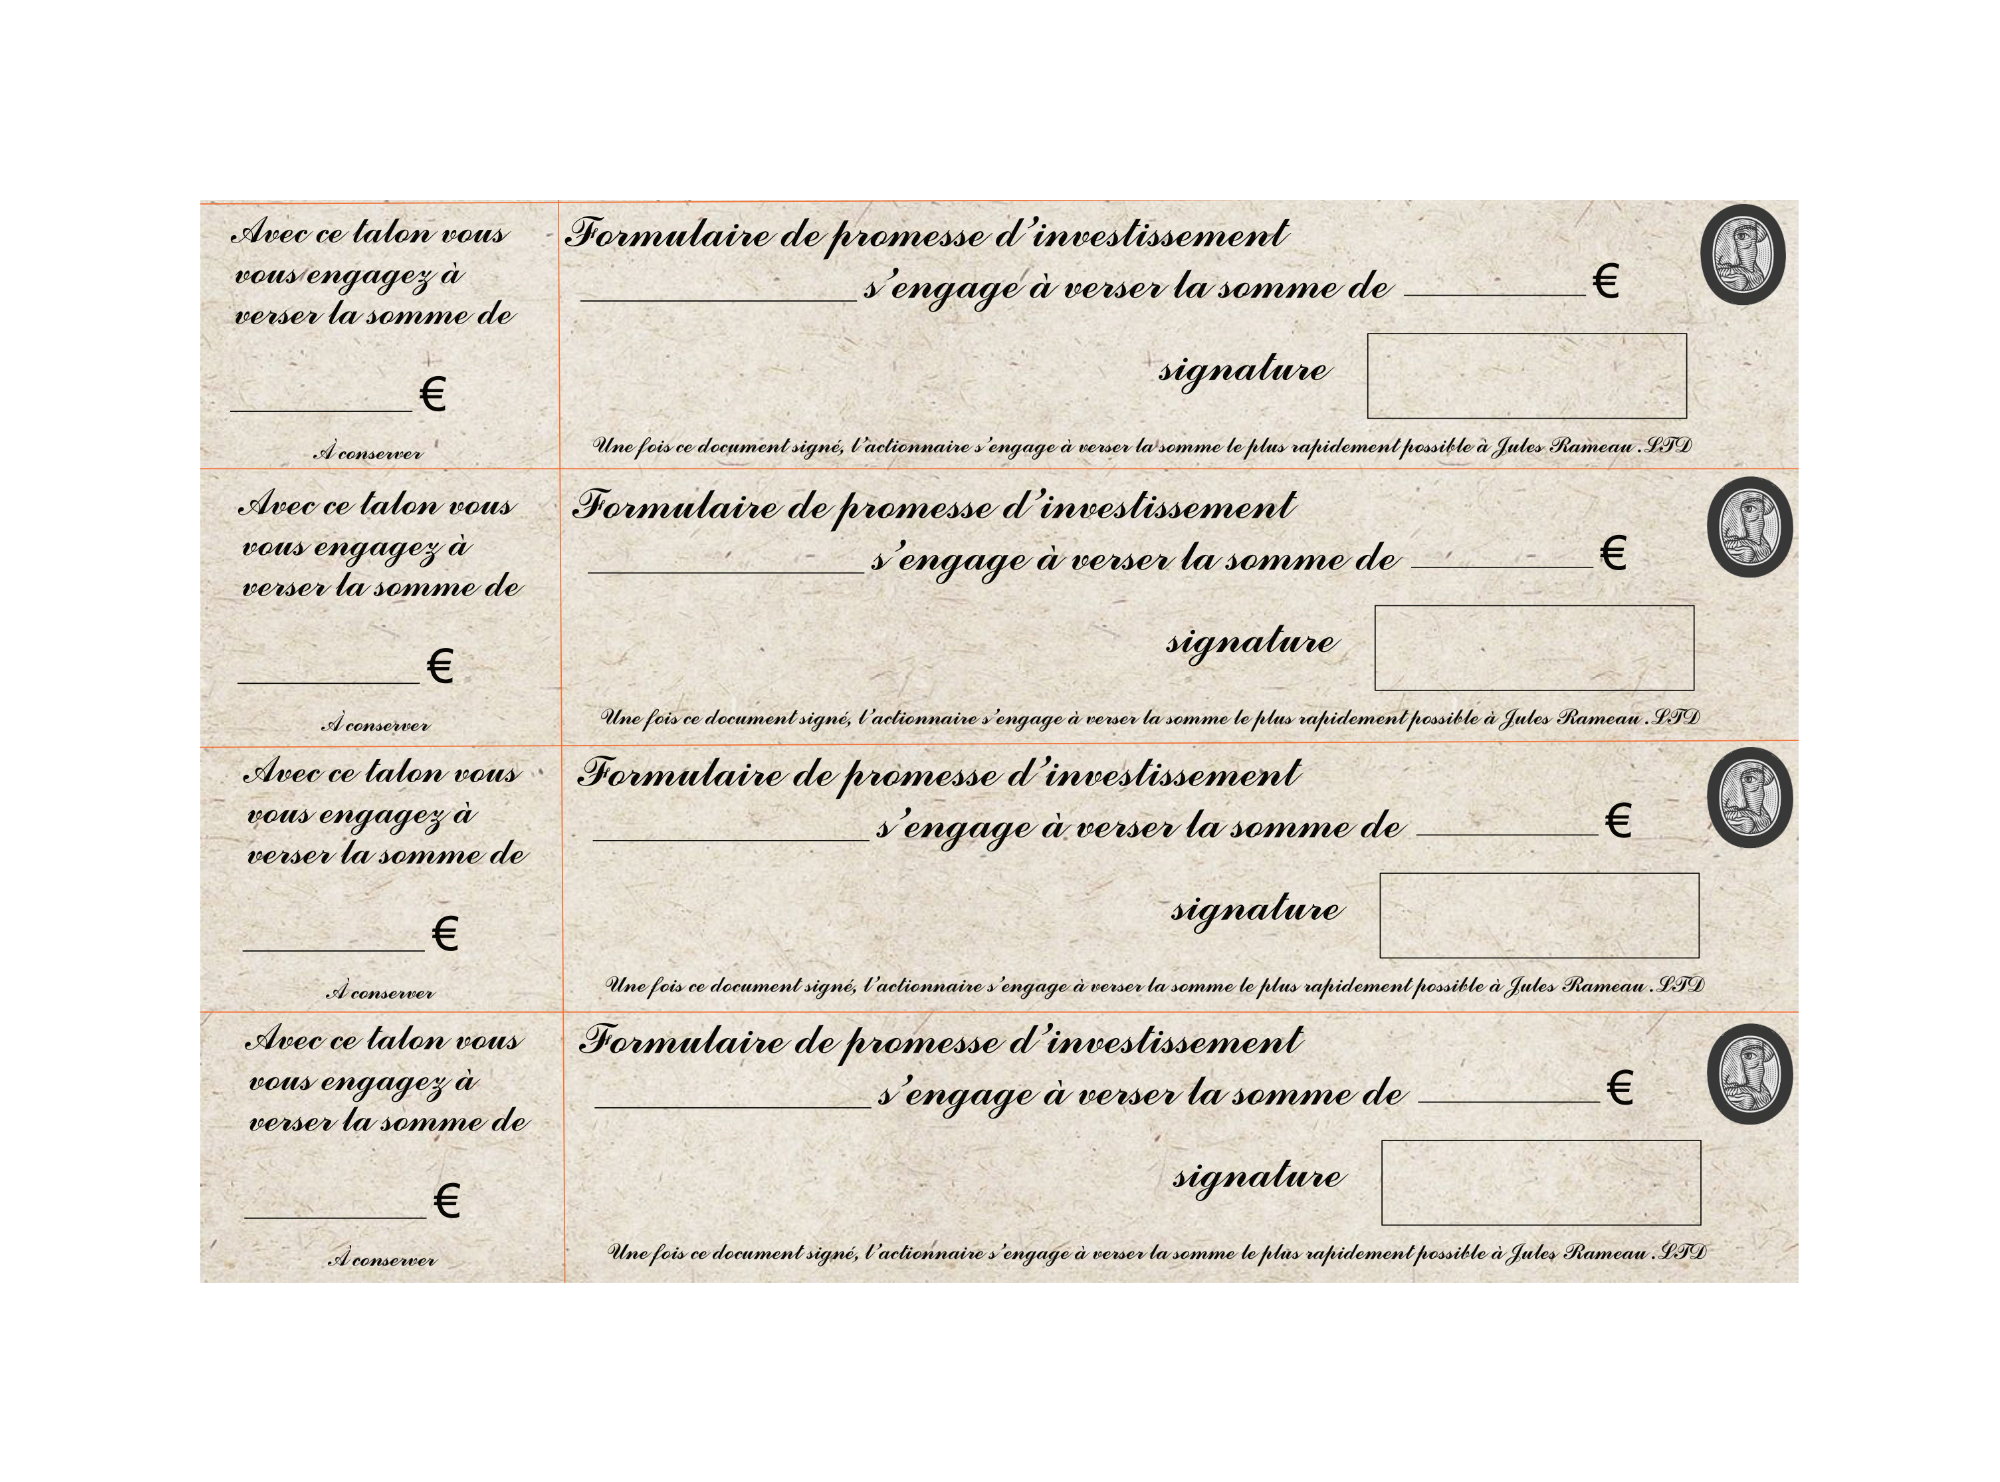 Avec ce talon vous
vous engagez à
verser la somme de
€
À conserver
Formulaire de promesse d'investissement
s'engage à verser la somme de €
signature
Une fois ce document signé, l'actionnaire s'engage à verser la somme le plus rapidement possible à Jules Rameau .LTD
Avec ce talon vous
vous engagez à
verser la somme de
€
À conserver
Formulaire de promesse d'investissement
s'engage à verser la somme de €
signature
Une fois ce document signé, l'actionnaire s'engage à verser la somme le plus rapidement possible à Jules Rameau .LTD
Avec ce talon vous
vous engagez à
verser la somme de
€
À conserver
Formulaire de promesse d'investissement
s'engage à verser la somme de €
signature
Une fois ce document signé, l'actionnaire s'engage à verser la somme le plus rapidement possible à Jules Rameau .LTD
Avec ce talon vous
vous engagez à
verser la somme de
€
À conserver
Formulaire de promesse d'investissement
s'engage à verser la somme de €
signature
Une fois ce document signé, l'actionnaire s'engage à verser la somme le plus rapidement possible à Jules Rameau .LTD